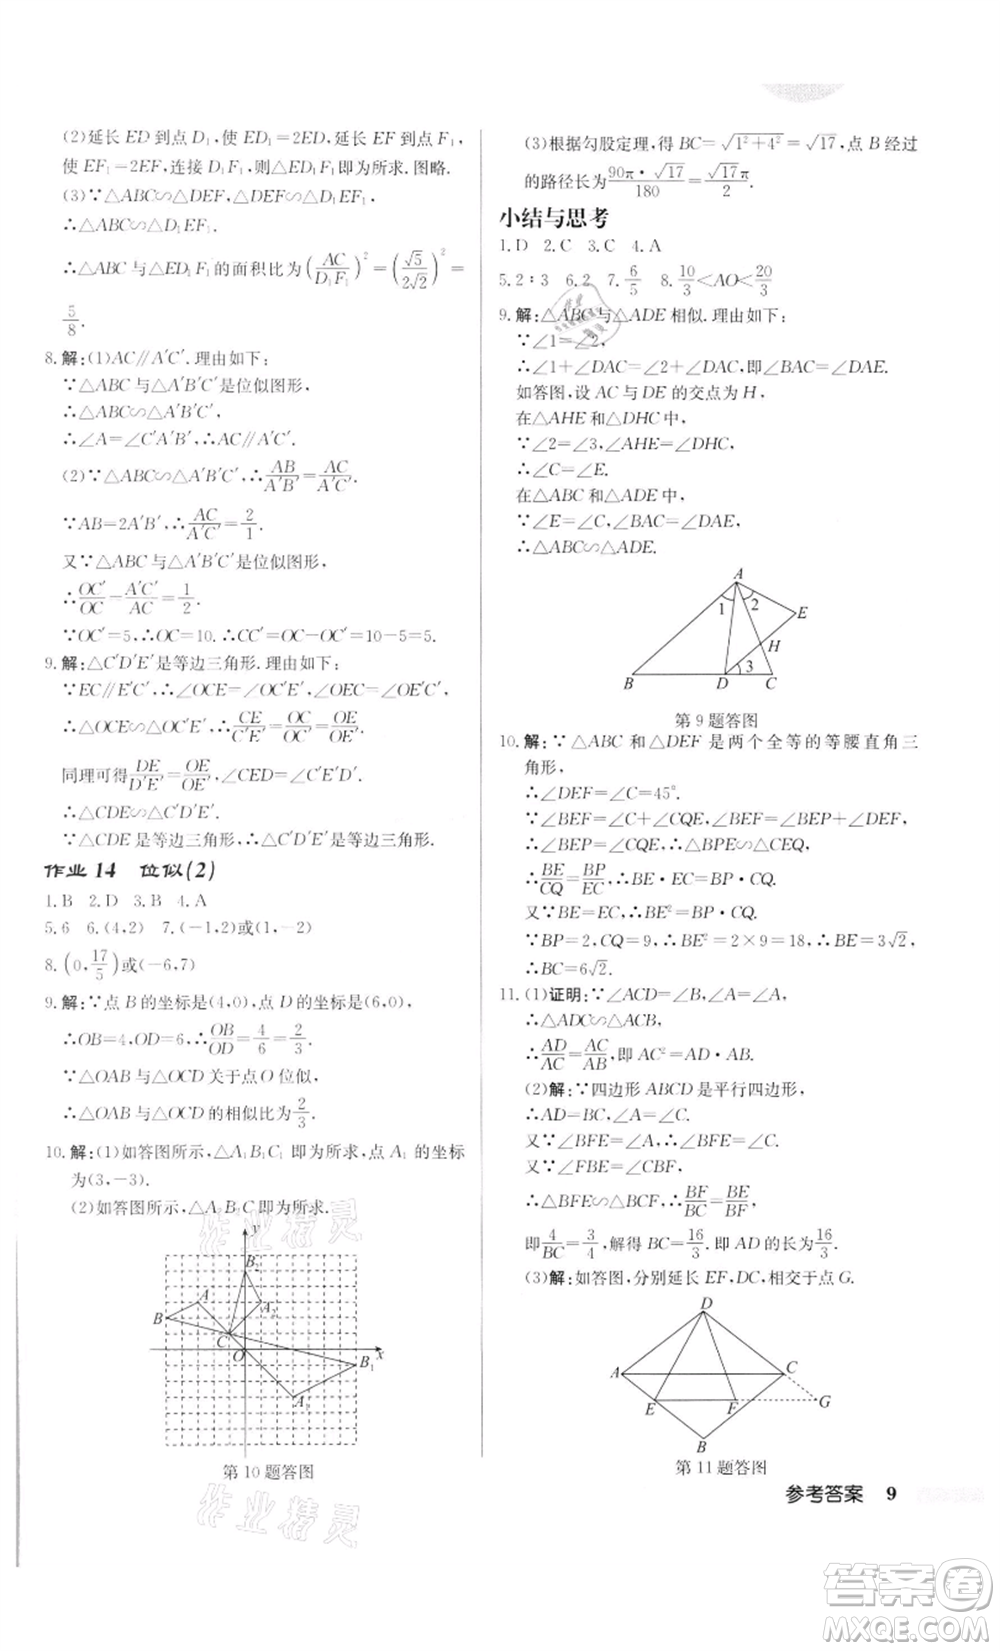 (2)延长 ED 到点 D₁,使 ED₁=2ED,延长 EF 到点 F₁,
使 EF₁=2EF,连接 D₁F₁,则△ED₁F₁即为所求.图略.
(3)∵△ABC∽△DEF,△DEF∽△D₁EF₁,
∴△ABC∽△D₁EF₁.
∴△ABC 与△ED₁F₁ 的面积比为(AC/D₁F₁)²=(√5/2√2)²=
5/8.
8.解:(1)AC∥A′C′.理由如下:
∵△ABC 与△A′B′C′是位似图形,
∴△ABC∽△A′B′C′,
∴∠A=∠C′A′B′,∴AC∥A′C′.
(2)∵△ABC∽△A′B′C′,∴AB/A′B′=AC/A′C′.
∵AB=2A′B′,∴AC/A′C′=2/1.
又∵△ABC 与△A′B′C′是位似图形,
∴OC′/OC=A′C′/AC=1/2.
∵OC′=5,∴OC=10.∴CC′=OC-OC′=10-5=5.
9.解:△C′D′E′是等边三角形.理由如下:
∵EC∥E′C′,∴∠OCE=∠OC′E′,∠OEC=∠OE′C′.
∴△OCE∽△OC′E′,∴CE/C′E′=OC/OC′=OE/OE′.
同理可得DE/D′E′=OE/OE′,∠CED=∠C′E′D′.
∴△CDE∽△C′D′E′.
∵△CDE 是等边三角形,∴△C′D′E′是等边三角形.
作业 14 位似(2)
1.B 2.D 3.B 4.A
5.6 6.(4,2) 7.(-1,2)或(1,-2)
8.(0,17/5)或(-6,7)
9.解:∵点 B 的坐标是(4,0),点 D 的坐标是(6,0),
∴OB=4,OD=6,∴OB/OD=4/6=2/3.
∵△OAB 与△OCD 关于点 O 位似,
∴△OAB 与△OCD 的相似比为2/3.
10.解:(1)如答图所示,△A₁B₁C 即为所求,点 A₁ 的坐标
为(3,-3).
(2)如答图所示,△A₂B₂C 即为所求.
y
B₂
A
A₂
B
C
O
x
B₁
A₁
第 10 题答图
(3)根据勾股定理,得 BC=√(1²+4²)=√17,点 B 经过
的路径长为90π·√17/180=√17π/2.
小结与思考
1.D 2.C 3.C 4.A
5.2∶3 6.2 7.6/5 8.10/3<AO<20/3
9.解:△ABC 与△ADE 相似.理由如下:
∵∠1=∠2,
∴∠1+∠DAC=∠2+∠DAC,即∠BAC=∠DAE.
如答图,设 AC 与 DE 的交点为 H,
在△AHE 和△DHC 中,
∵∠2=∠3,∠AHE=∠DHC,
∴∠C=∠E.
在△ABC 和△ADE 中,
∵∠E=∠C,∠BAC=∠DAE,
∴△ABC∽△ADE.
A
1
2
E
H
3
B
D
C
第 9 题答图
10.解:∵△ABC 和△DEF 是两个全等的等腰直角三
角形,
∴∠DEF=∠B=∠C=45°.
∵∠BEF=∠C+∠CQE=∠BEP+∠DEF,
∴∠BEP=∠CQE,∴△BPE∽△CEQ.
∴BE/CQ=BP/EC,∴BE·EC=BP·CQ.
又∵BE=EC,∴BE²=BP·CQ.
∵BP=2,CQ=9,∴BE²=2×9=18,∴BE=3√2,
∴BC=6√2.
11.(1)证明:∵∠ACD=∠B,∠A=∠A,
∴△ADC∽△ACB,
∴AD/AC=AC/AB,即 AC²=AD·AB.
(2)解:∵四边形 ABCD 是平行四边形,
∴AD=BC,∠A=∠C.
又∵∠BFE=∠A,∴∠BFE=∠C.
又∵∠FBE=∠CBF,
∴△BFE∽△BCF,∴BF/BC=BE/BF,
即4/BC=3/4,解得 BC=16/3.即 AD 的长为16/3.
(3)解:如答图,分别延长 EF,DC,相交于点 G.
D
A
C
E
F
G
B
第 11 题答图
参考答案 9
作业精灵
作业精灵
答案卷
MXQE.COM